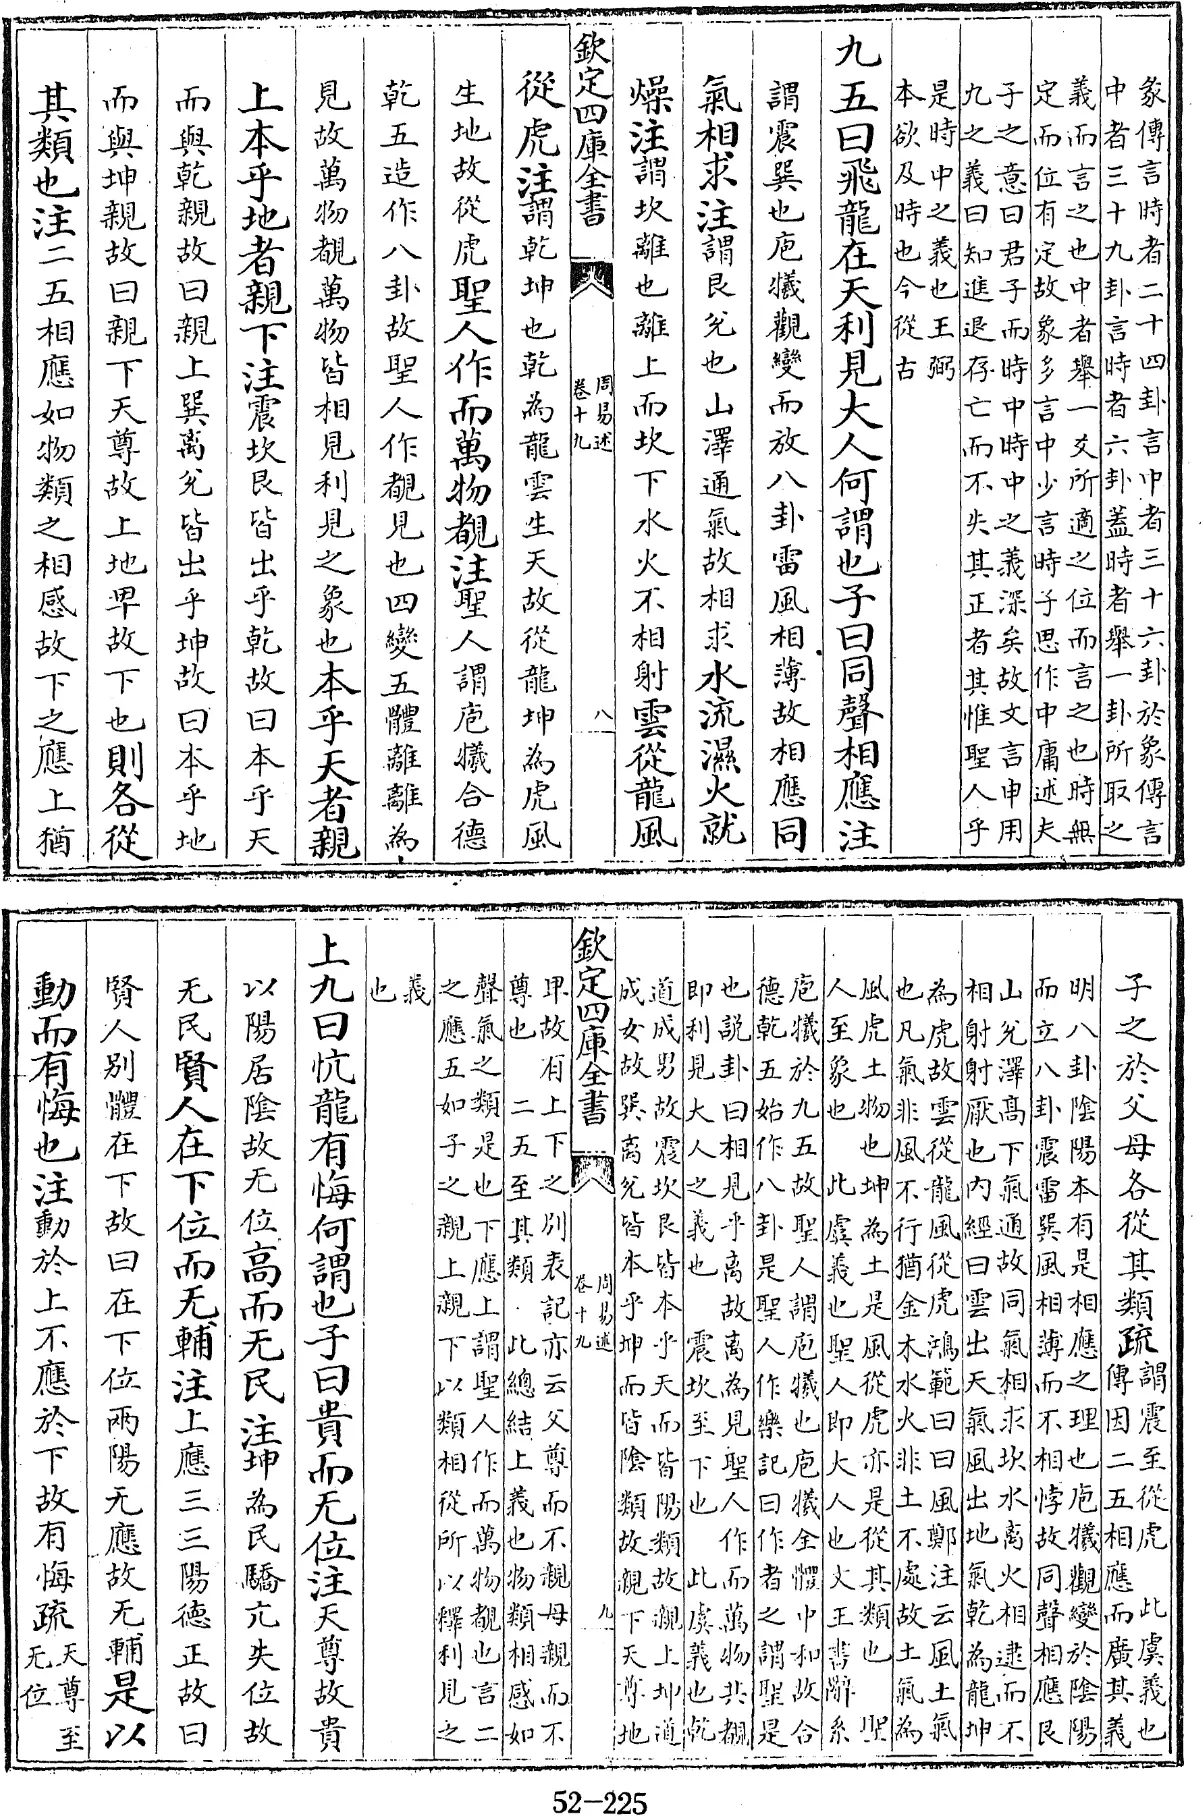 彖傳言時者二十四卦言中者三十六卦於象傳言
中者三十九卦言時者六卦蓋時者舉一卦所取之
義而言之也中者舉一爻所適之位而言之也時無
定而位有定故象多言中少言時子思作中庸述夫
子之意曰君子而時中時中之義深矣故文言申用
九之義曰知進退存亡而不失其正者其惟聖人乎
是時中之義也王弼
本欲及時也今從古
九五曰飛龍在天利見大人何謂也子曰同聲相應注
謂震巽也庖犧觀變而放八卦雷風相薄故相應同
氣相求注謂艮兌也山澤通氣故相求水流濕火就
燥注謂坎離也離上而坎下水火不相射雲從龍風
欽定四庫全書
周易述
卷十九
八
從虎注謂乾坤也乾為龍雲生天故從龍坤為虎風
生地故從虎聖人作而萬物覩注聖人謂庖犧合德
乾五造作八卦故聖人作覩見也四變五體離離為
見故萬物覩萬物皆相見利見之象也本乎天者親
上本乎地者親下注震坎艮皆出乎乾故曰本乎天
而與乾親故曰親上巽离兌皆出乎坤故曰本乎地
而與坤親故曰親下天尊故上地卑故下也則各從
其類也注二五相應如物類之相感故下之應上猶
子之於父母各從其類疏謂震至從虎　此虞義也
傳因二五相應而廣其義
明八卦陰陽本有是相應之理也庖犧觀變於陰陽
而立八卦震雷巽風相薄而不相悖故同聲相應艮
山兌澤髙下氣通故同氣相求坎水离火相逮而不
相射射厭也内經曰雲出天氣風出地氣乾為龍坤
為虎故雲從龍風從虎鴻範曰曰風鄭注云風土氣
也凡氣非風不行猶金木水火非土不處故土氣為
風虎土物也坤為土是風從虎亦是從其類也　聖
人至象也　此虞義也聖人即大人也文王書辭系
庖犧於九五故聖人謂庖犧也庖犧全體中和故合
德乾五始作八卦是聖人作樂記曰作者之謂聖是
也說卦曰相見乎离故离為見聖人作而萬物共覩
即利見大人之義也　震坎至下也　此虞義也乾
道成男故震坎艮皆本乎天而皆陽類故親上坤道
成女故巽离兌皆本乎坤而皆陰類故親下天尊地
欽定四庫全書
周易述
卷十九
九
卑故有上下之别表記亦云父尊而不親母親而不
尊也　二五至其類　此總結上義也物類相感如
聲氣之類是也下應上謂聖人作而萬物覩也言二
之應五如子之親上親下以類相從所以釋利見之
義
也
上九曰忼龍有悔何謂也子曰貴而无位注天尊故貴
以陽居陰故无位高而无民注坤為民驕亢失位故
无民賢人在下位而无輔注上應三三陽德正故曰
賢人别體在下故曰在下位兩陽无應故无輔是以
動而有悔也注動於上不應於下故有悔疏天尊至
无位
52-225